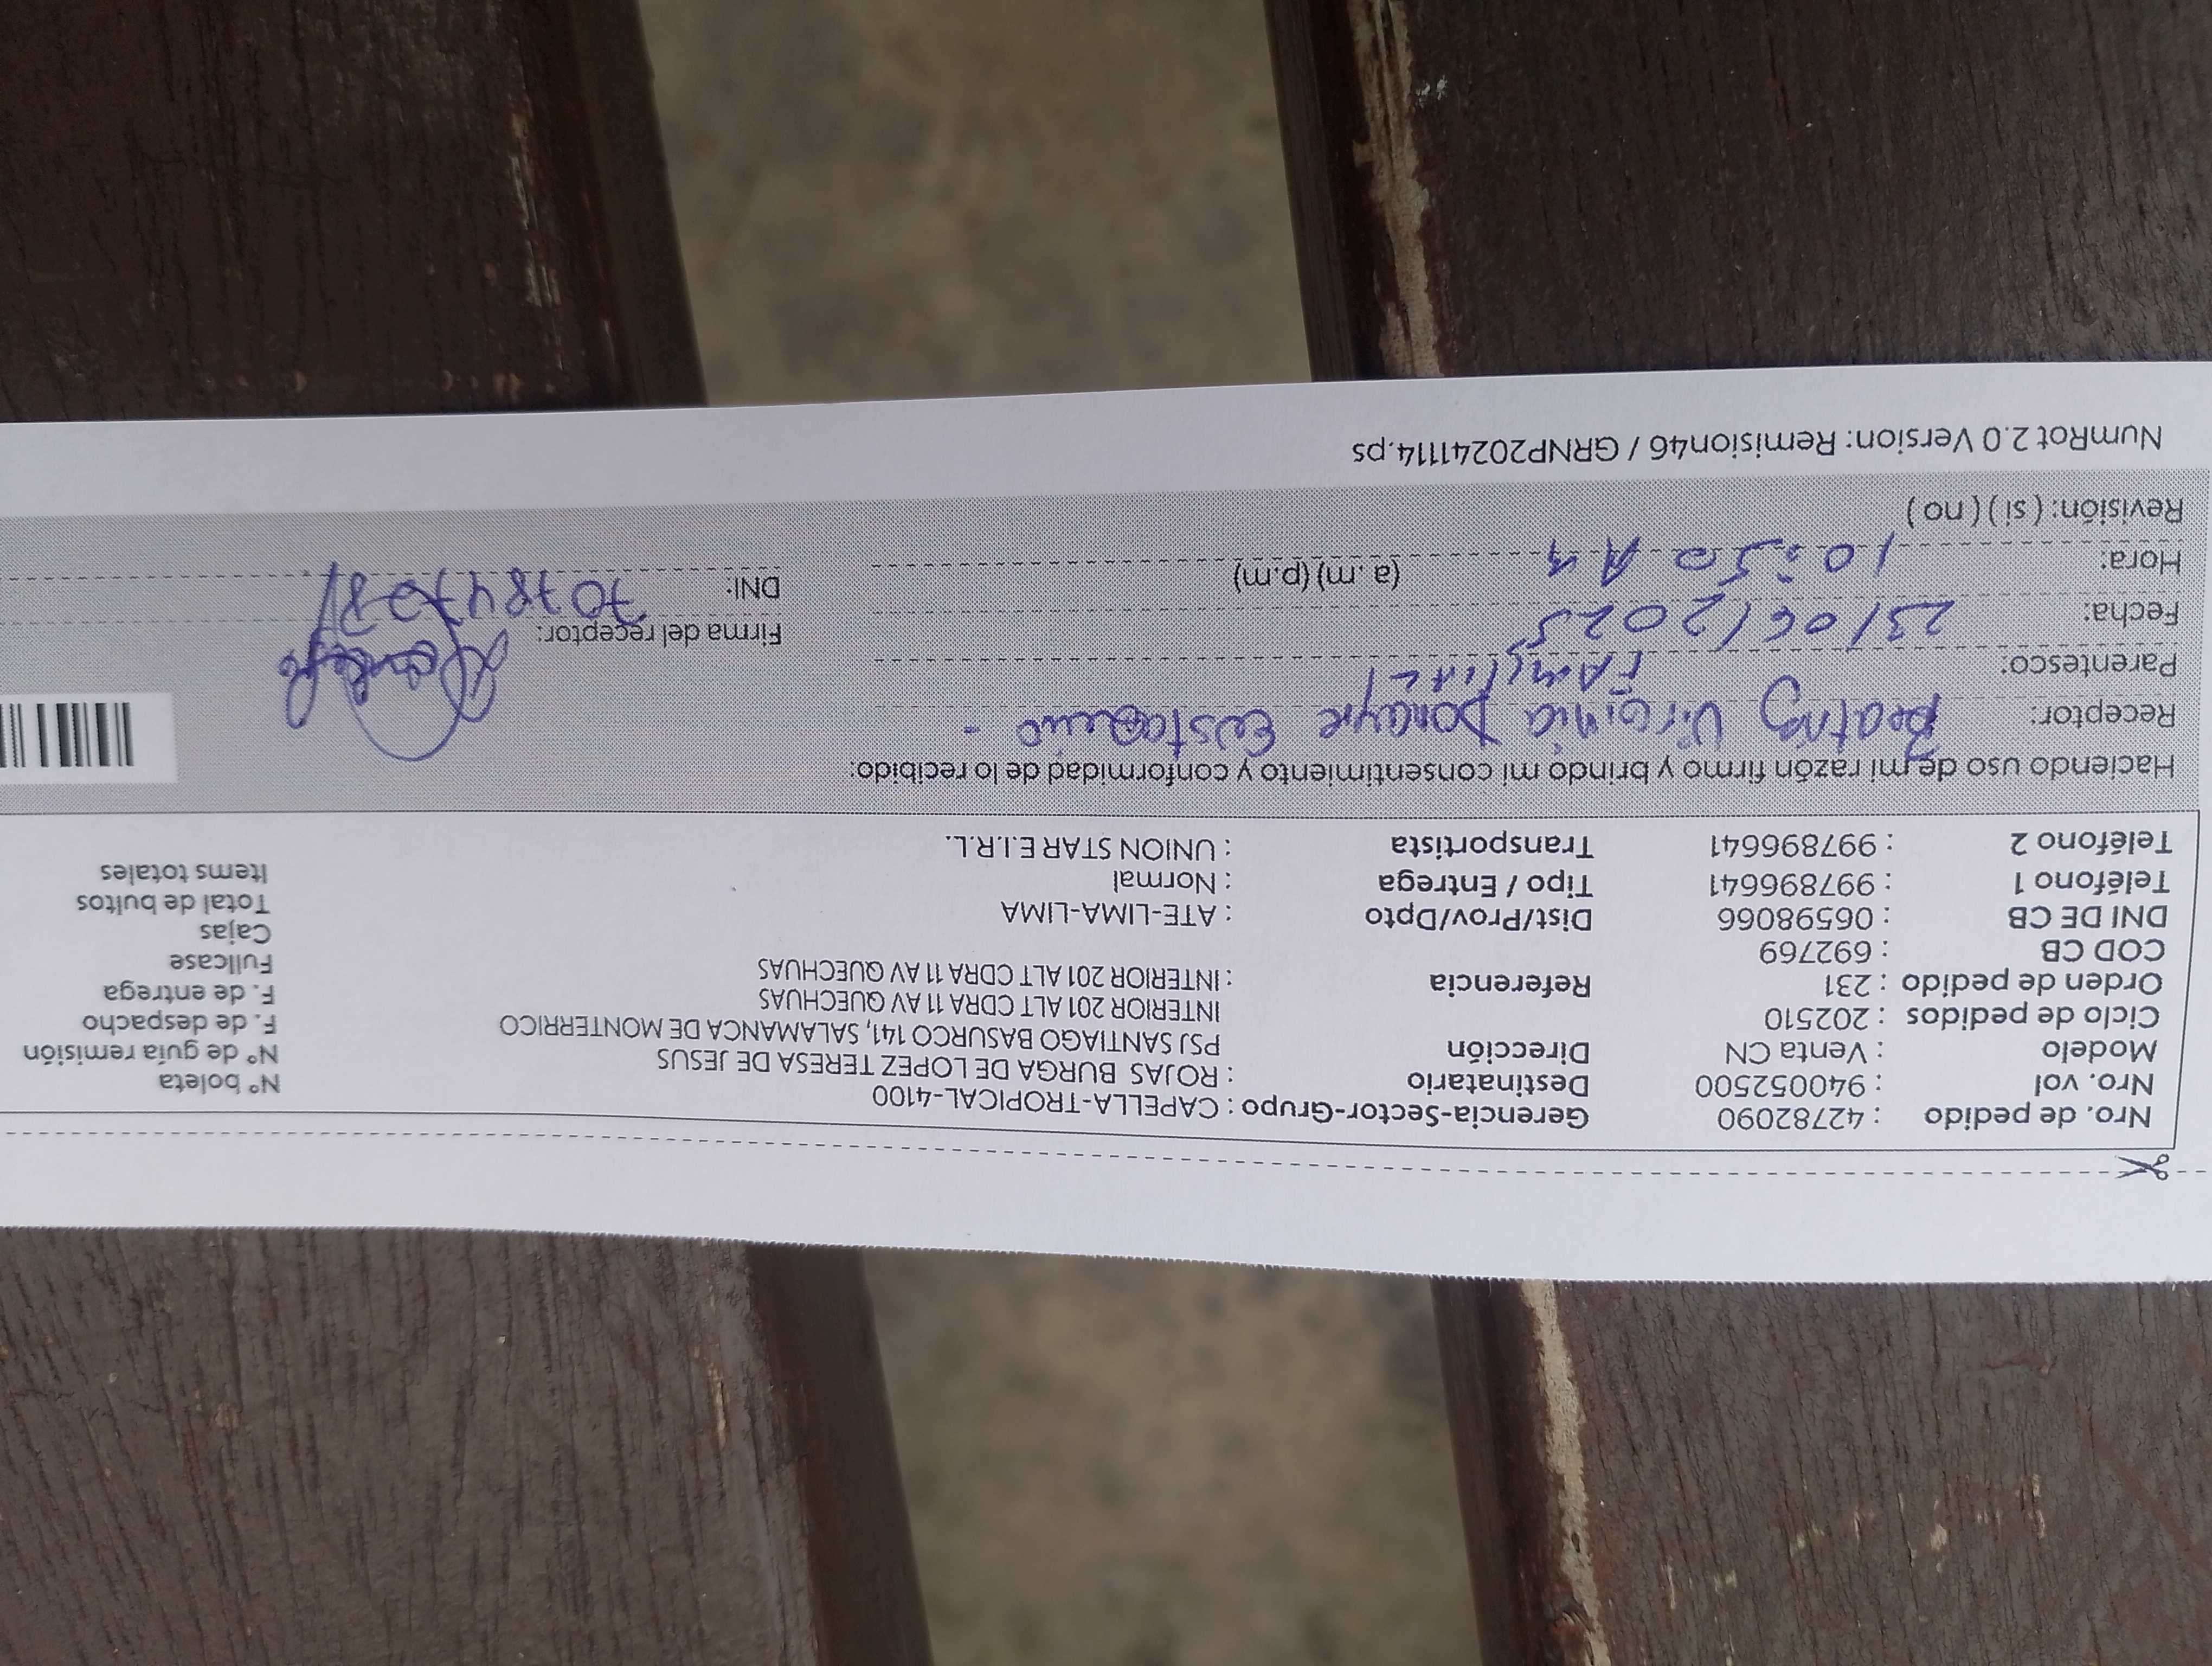 Nro. de pedido : 42782090 Gerencia-Sector-Grupo : CAPELLA-TROPICAL-4100
Nro. vol : 940052500 Destinatario : ROJAS BURGA DE LOPEZ TERESA DE JESUS Nº boleta
Modelo : Venta CN Dirección PSJ SANTIAGO BASURCO 141, SALAMANCA DE MONTERRICO Nº de guía remisión
Ciclo de pedidos : 202510 INTERIOR 201 ALT CDRA 11 AV QUECHUAS F. de despacho
Orden de pedido : 231 Referencia : INTERIOR 201 ALT CDRA 11 AV QUECHUAS F. de entrega
COD CB : 692769 Fullcase
DNI DE CB : 06598066 Dist/Prov/Dpto : ATE-LIMA-LIMA Cajas
Teléfono 1 : 997896641 Tipo / Entrega : Normal Total de bultos
Teléfono 2 : 997896641 Transportista : UNION STAR E.I.R.L. Items totales
Haciendo uso de mi razón firmo y brindo mi consentimiento y conformidad de lo recibido:
Receptor: Beatriz Virginia Donayre
Parentesco: FAMILIAR Firma del receptor:
Fecha: 23/06/2025 DNI:
Hora: 10:50 AM (a.m) (p.m)
Revisión: ( si ) ( no )
NumRot 2.0 Version: Remision46 / GRNP20241114.ps